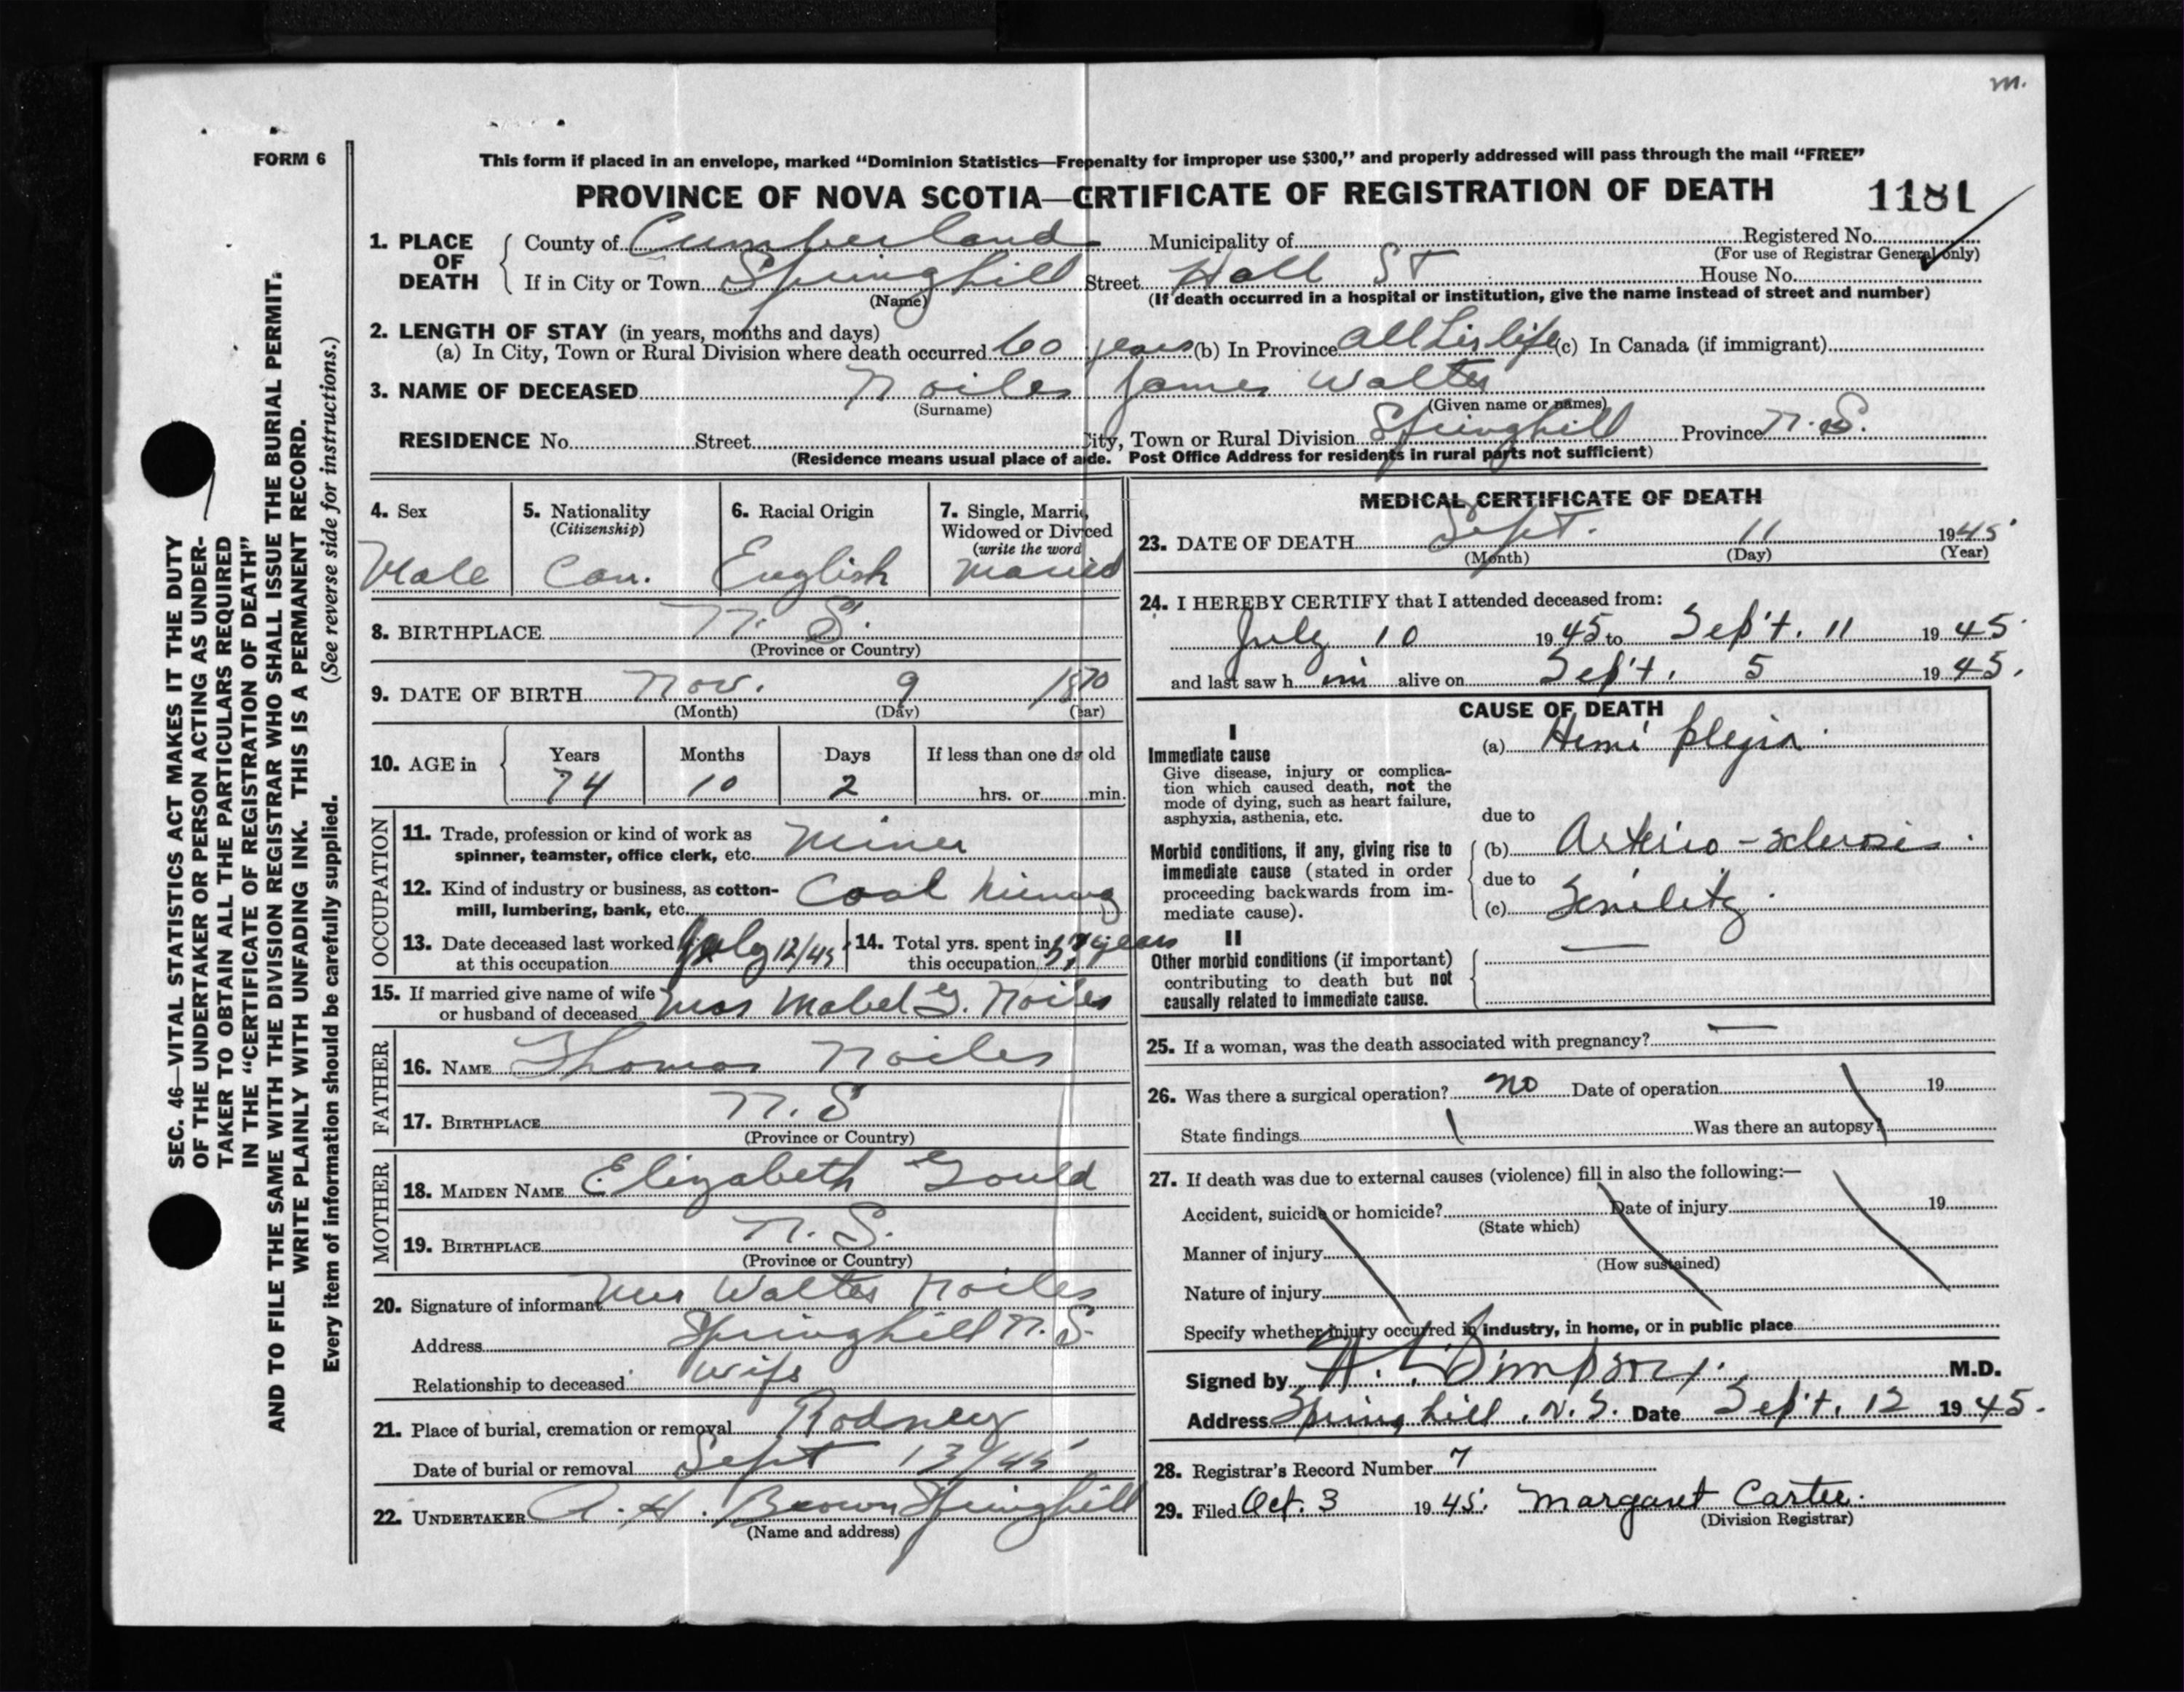 m.
FORM 6
This form if placed in an envelope, marked “Dominion Statistics—Frepenalty for improper use $300,” and properly addressed will pass through the mail “FREE”
PROVINCE OF NOVA SCOTIA—CRTIFICATE OF REGISTRATION OF DEATH 1181
1. PLACE OF DEATH County of Cumberland Municipality of Registered No.
(For use of Registrar General only)
If in City or Town Springhill Street Hall St House No.
(Name) (If death occurred in a hospital or institution, give the name instead of street and number)
2. LENGTH OF STAY (in years, months and days)
(a) In City, Town or Rural Division where death occurred 60 years (b) In Province All his life (c) In Canada (if immigrant)
3. NAME OF DECEASED Noiles James Walter
(Surname) (Given name or names)
RESIDENCE No. Street City, Town or Rural Division Springhill Province N.S.
(Residence means usual place of aide. Post Office Address for residents in rural parts not sufficient)
4. Sex 5. Nationality 6. Racial Origin 7. Single, Marrie,
(Citizenship) Widowed or Divced
(write the word
Male Can. English Married
8. BIRTHPLACE N. S.
(Province or Country)
9. DATE OF BIRTH Nov. 9 1870
(Month) (Day) (ear)
10. AGE in Years Months Days If less than one da old
74 10 2 hrs. or min.
OCCUPATION
11. Trade, profession or kind of work as
spinner, teamster, office clerk, etc. Miner
12. Kind of industry or business, as cotton-
mill, lumbering, bank, etc. Coal Mining
13. Date deceased last worked at this occupation July 12/45 14. Total yrs. spent in this occupation years
15. If married give name of wife
or husband of deceased Mrs Mabel G. Noiles
FATHER
16. NAME Thomas Noiles
17. BIRTHPLACE N. S
(Province or Country)
MOTHER
18. MAIDEN NAME Elizabeth Gould
19. BIRTHPLACE N. S.
(Province or Country)
20. Signature of informant Mrs Walter Noiles
Address Springhill N. S.
Relationship to deceased Wife
21. Place of burial, cremation or removal Rodney
Date of burial or removal Sept 13/45
22. UNDERTAKER A. H. Brown Springhill
(Name and address)
MEDICAL CERTIFICATE OF DEATH
23. DATE OF DEATH Sept. 11 1945
(Month) (Day) (Year)
24. I HEREBY CERTIFY that I attended deceased from:
July 10 1945 to Sep't. 11 1945
and last saw him alive on Sep't. 5 1945.
CAUSE OF DEATH
I
Immediate cause
Give disease, injury or complica-
tion which caused death, not the
mode of dying, such as heart failure,
asphyxia, asthenia, etc.
(a) Hemi plegia.
due to
Morbid conditions, if any, giving rise to
immediate cause (stated in order
proceeding backwards from im-
mediate cause).
(b) Arterio-sclerosis.
due to
(c) Senility.
II
Other morbid conditions (if important)
contributing to death but not
causally related to immediate cause.
25. If a woman, was the death associated with pregnancy? —
26. Was there a surgical operation? no Date of operation 19
State findings Was there an autopsy?
27. If death was due to external causes (violence) fill in also the following:—
Accident, suicide or homicide? Date of injury 19
(State which)
Manner of injury
(How sustained)
Nature of injury
Specify whether injury occurred in industry, in home, or in public place
Signed by Simpson. M.D.
Address Spring hill, N. S. Date Sep't. 12 1945.
28. Registrar's Record Number 7
29. Filed Oct. 3 1945. Margaret Carter.
(Division Registrar)
SEC. 46—VITAL STATISTICS ACT MAKES IT THE DUTY
OF THE UNDERTAKER OR PERSON ACTING AS UNDER-
TAKER TO OBTAIN ALL THE PARTICULARS REQUIRED
IN THE “CERTIFICATE OF REGISTRATION OF DEATH”
AND TO FILE THE SAME WITH THE DIVISION REGISTRAR WHO SHALL ISSUE THE BURIAL PERMIT.
WRITE PLAINLY WITH UNFADING INK. THIS IS A PERMANENT RECORD.
Every item of information should be carefully supplied. (See reverse side for instructions.)